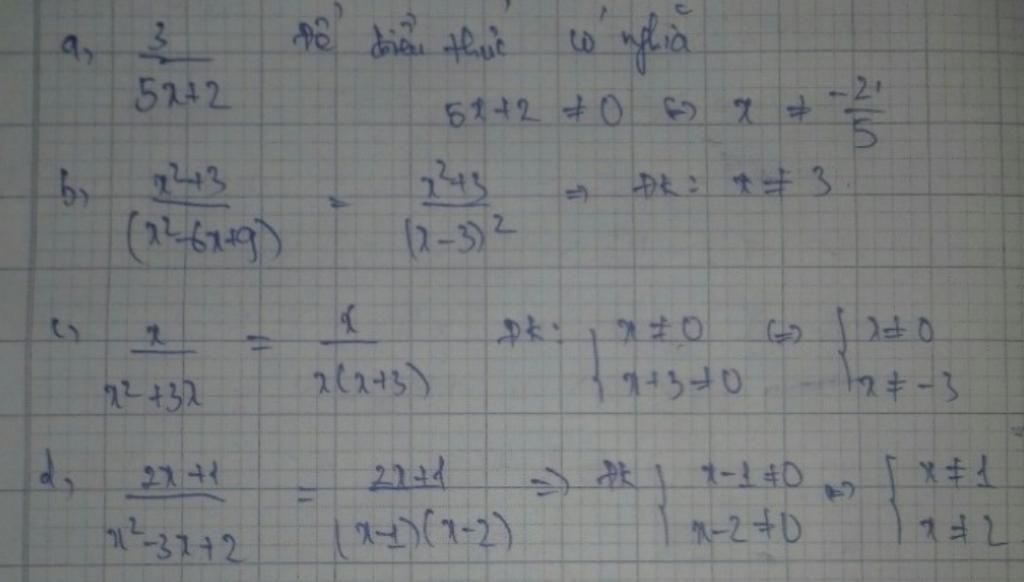 a, 3/(5x+2) Để biểu thức có nghĩa
5x+2 ≠ 0 <=> x ≠ -2/5
b, (x²+3)/(x²-6x+9) = (x²+3)/(x-3)² => ĐK: x ≠ 3
c, x/(x²+3x) = x/(x(x+3)) ĐK: { x ≠ 0 ; x+3 ≠ 0 <=> { x ≠ 0 ; x ≠ -3
d, (2x+1)/(x²-3x+2) = (2x+1)/((x-1)(x-2)) => ĐK { x-1 ≠ 0 ; x-2 ≠ 0 <=> { x ≠ 1 ; x ≠ 2